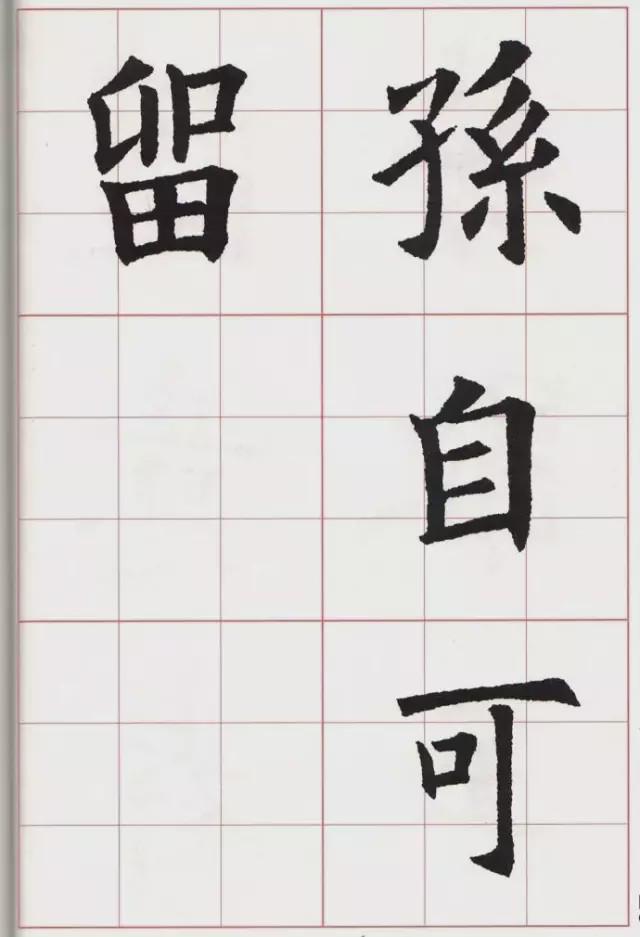 孫自可
留